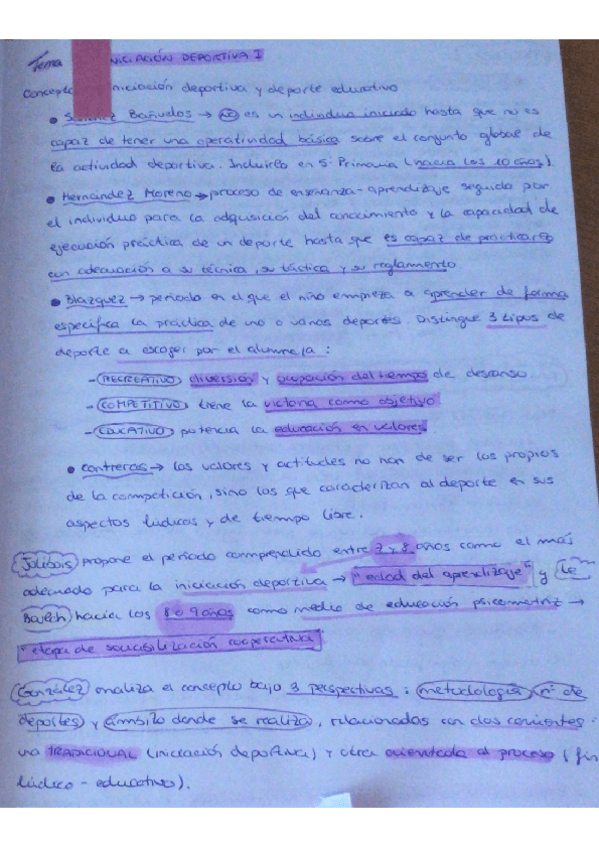 Tema INICIACIÓN DEPORTIVA I
Concepto iniciación deportiva y deporte educativo
• Sánchez Bañuelos → NO es un individuo iniciado hasta que no es
capaz de tener una operatividad básica sobre el conjunto global de
la actividad deportiva. Incluirlo en 5º Primaria (hacia los 10 años).
• Hernández Moreno → proceso de enseñanza-aprendizaje seguido por
el individuo para la adquisición del conocimiento y la capacidad de
ejecución práctica de un deporte hasta que es capaz de practicarlo
con adecuación a su técnica, su táctica y su reglamento.
• Blázquez → periodo en el que el niño empieza a aprender de forma
específica la práctica de uno o varios deportes. Distingue 3 tipos de
deporte a escoger por el alumno/a:
- RECREATIVO diversión y ocupación del tiempo de descanso.
- COMPETITIVO tiene la victoria como objetivo
- EDUCATIVO potencia la educación en valores.
• Contreras → los valores y actitudes no han de ser los propios
de la competición, sino los que caracterizan al deporte en sus
aspectos lúdicos y de tiempo libre.
Jolibois propone el período comprendido entre 7 y 8 años como el más
adecuado para la iniciación deportiva → "edad del aprendizaje" y Le
Boulch hacia los 8 o 9 años como medio de educación psicomotriz →
"etapa de sociabilización cooperativa"
González analiza el concepto bajo 3 perspectivas: metodología, nº de
deportes y ámbito donde se realiza, relacionados con dos corrientes:
una TRADICIONAL (iniciación deportiva) y otra orientada al proceso (fin
lúdico - educativo).